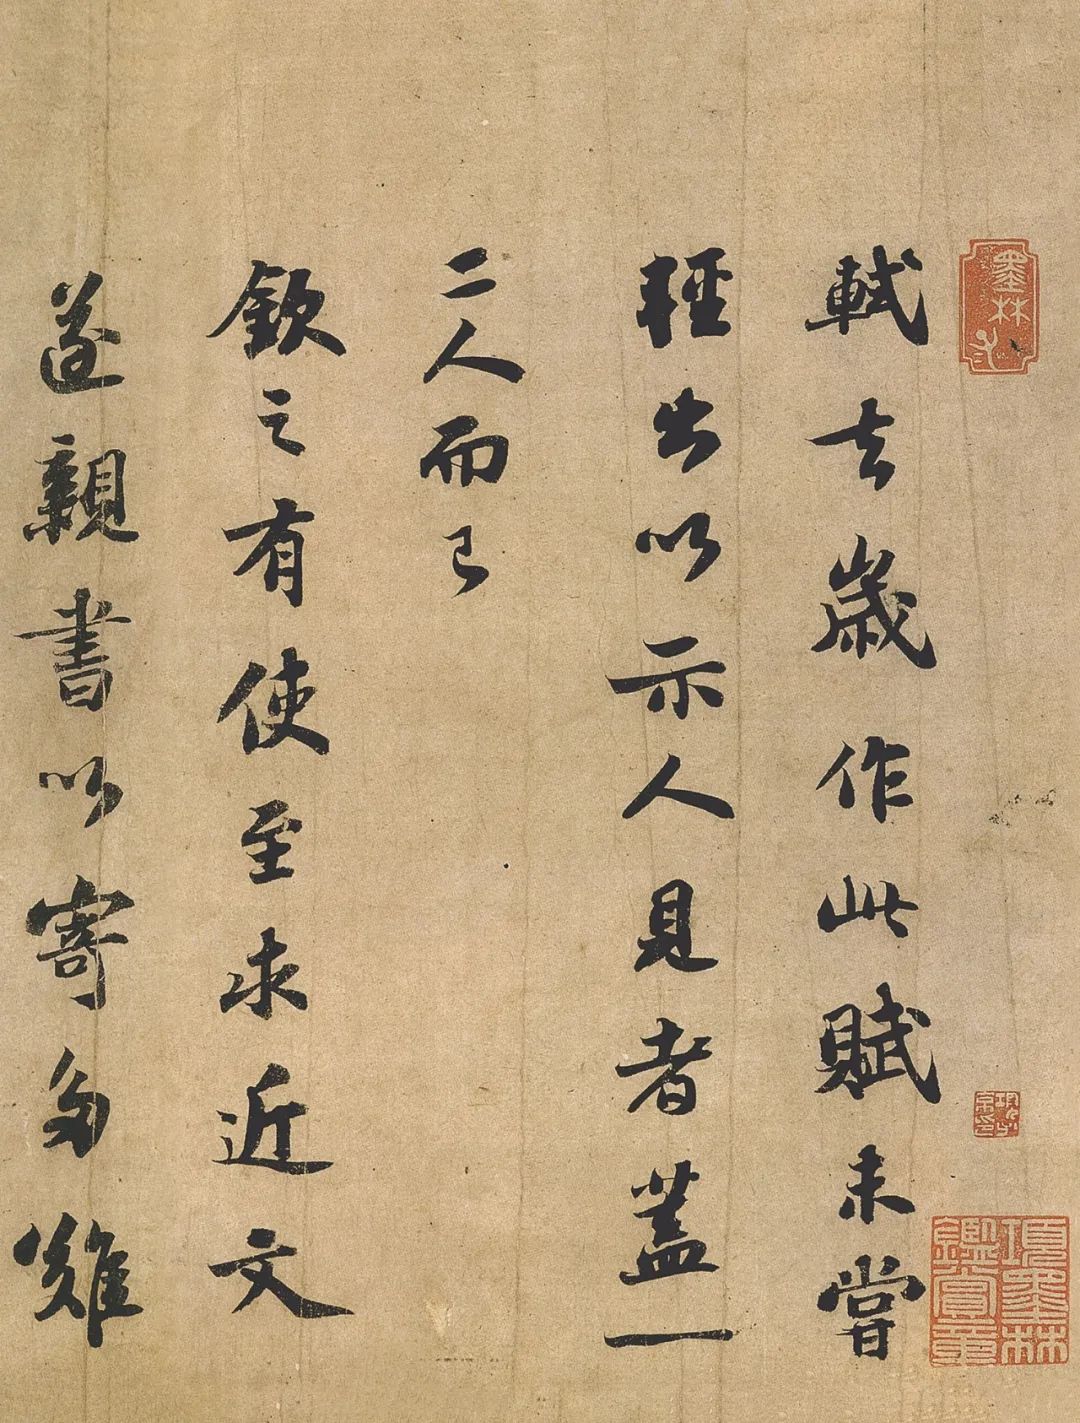 墨林
項墨林鑑賞章
軾去歲作此賦未嘗
輕出以示人見者蓋一
二人而已
欽之有使至求近文
遂親書以寄多難